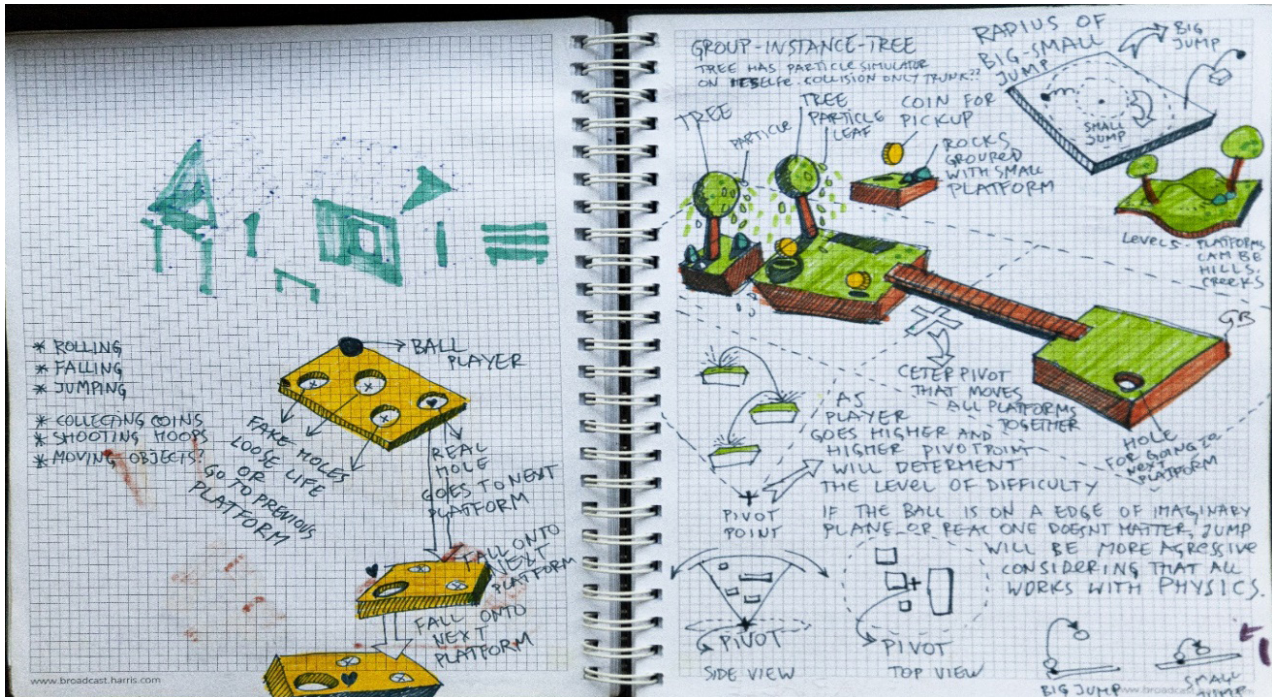 * ROLLING
* FALLING
* JUMPING
* COLLECTING COINS
* SHOOTING HOOPS
* MOVING OBJECTS?
BALL
PLAYER
FAKE HOLES
LOOSE LIFE
OR
GO TO PREVIOUS
PLATFORM
REAL
HOLE
GOES TO NEXT
PLATFORM
FALL ONTO
NEXT
PLATFORM
FALL ONTO
NEXT
PLATFORM
www.broadcast.harris.com
GROUP-INSTANCE-TREE
TREE HAS PARTICLE SIMULATOR
ON ITSELFE. COLLISION ONLY TRUNK??
RADIUS OF
BIG-SMALL
JUMP
BIG
JUMP
SMALL
JUMP
TREE
PARTICLE
TREE
PARTICLE
LEAF
COIN FOR
PICKUP
ROCKS
GROUPED
WITH SMALL
PLATFORM
LEVELS - PLATFORMS
CAM BE
HILLS.
CREEKS
GB
CETER PIVOT
THAT MOVES
ALL PLATFORMS
TOGETHER
HOLE
FOR GOING TO
NEXT
PLATFORM
AS
PLAYER
GOES HIGHER AND
HIGHER PIVOTPOINT
WILL DETERMENT
THE LEVEL OF DIFFICULTY
PIVOT
POINT
IF THE BALL IS ON A EDGE OF IMAGINARY
PLANE OR REAL ONE DOESNT MATTER, JUMP
WILL BE MORE AGRESSIVE
CONSIDERING THAT ALL
WORKS WITH PHYSICS.
PIVOT
SIDE VIEW
PIVOT
TOP VIEW
BIG JUMP
SMALL
JUMP
www.broadcast.harris.com